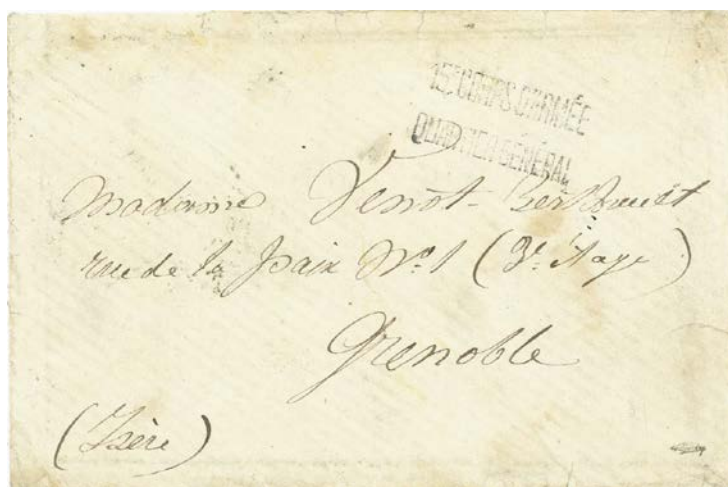 15e CORPS D'ARMÉE
QUARTIER GÉNÉRAL
Madame Venot-
rue de la Paix No. 1 (3e. étage)
Grenoble
(Isère)